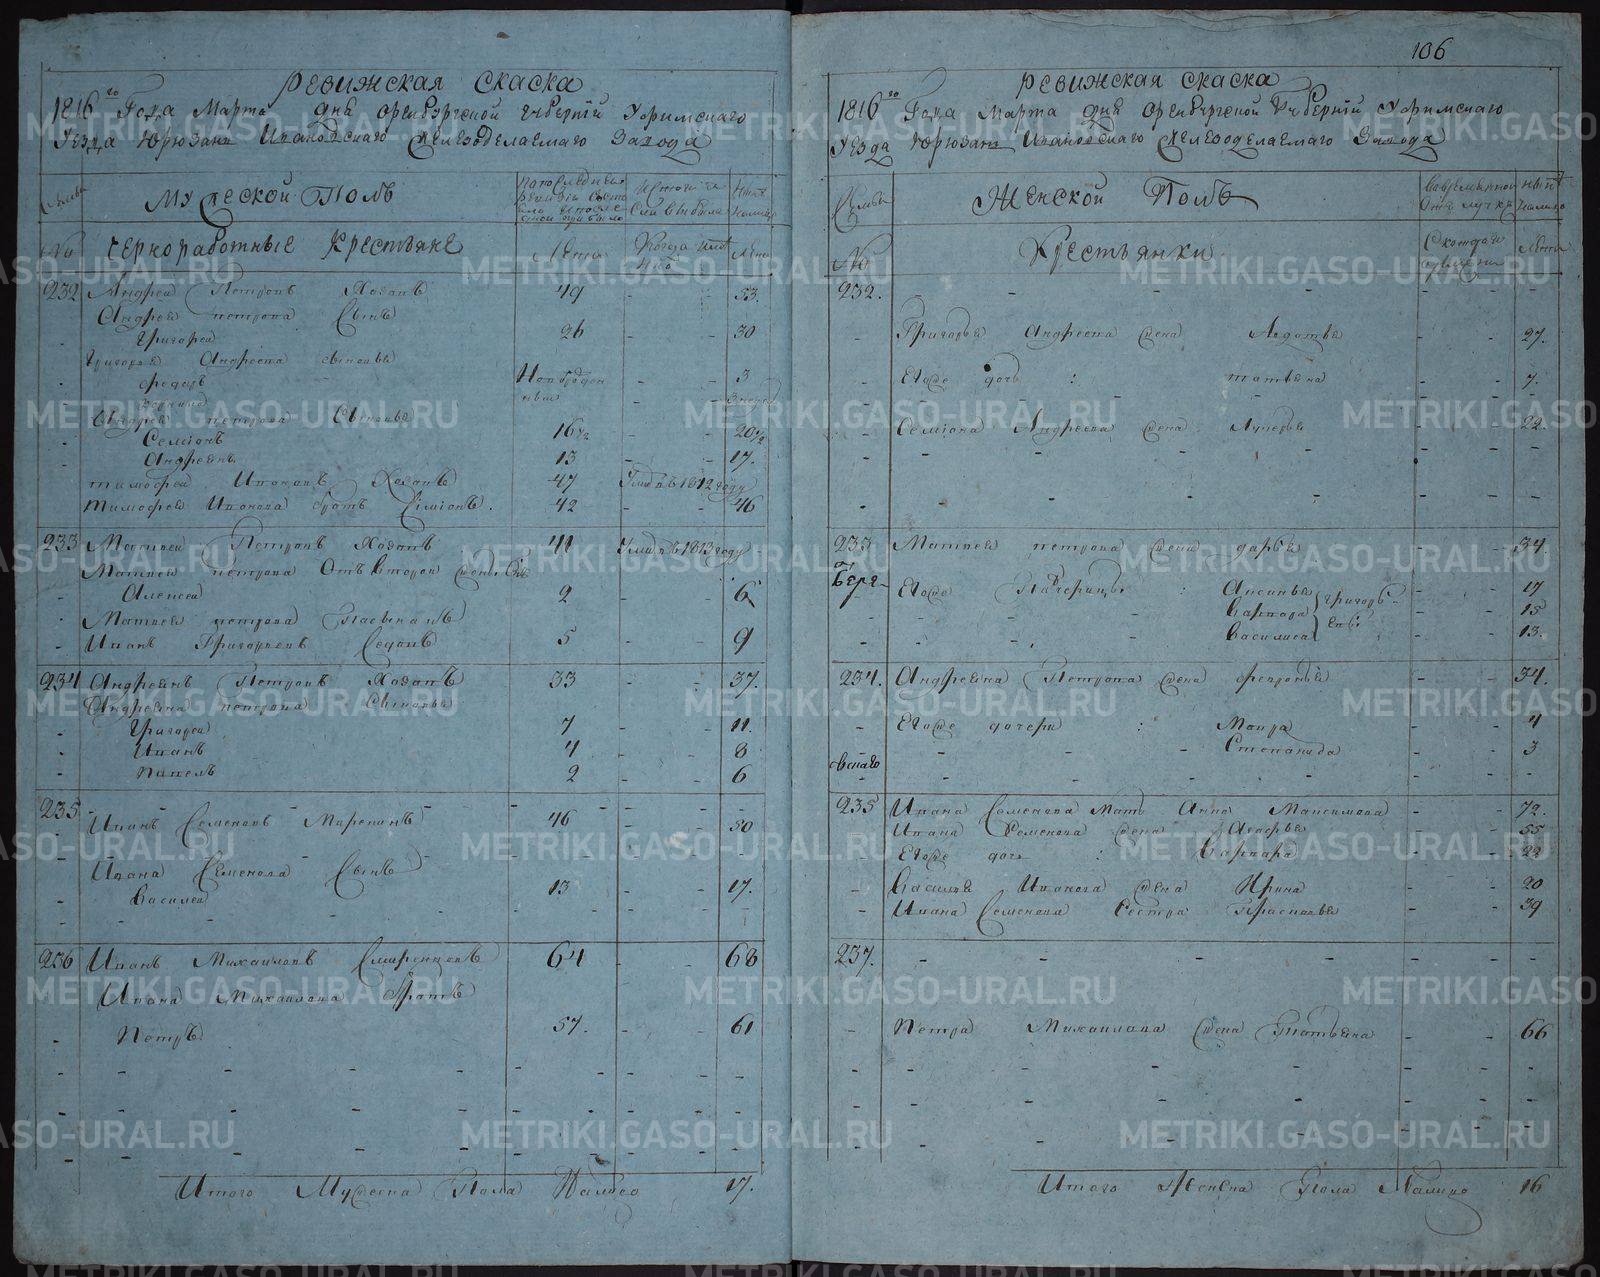 106
Ревижская скаска
1816 го Года Марта дня Оренбургской губерніи Уфимскаго
Уезда Юрюзань Ивановскаго железоделаемаго завода
Мужеской Полъ
Чернорабочные Крестьяне
Лета
Лета
232 Андреи Петровъ Хазовъ 49 - - 53.
Андрея Петрова Сынъ
Григореи 26 - - 30
Григорья Андреева сыновья
Федоръ Новорожден - - 3
ные
Андрея Петрова Сыновья
Семіонъ 16 1/2 - - 20 1/2
Андреянъ 13 - - 17.
Тимофеи Ивановъ Хазовъ 47 Умре въ 1812 году
Тимофея Иванова братъ Симіонъ. 42 - - 46
233 Матвеи Петровъ Хазовъ 41 Умре въ 1813 году
Матвея Петрова Отъ второй жены Сынъ
Алексеи 2 - - 6
Матвея Петрова Пасынокъ
Иванъ Григорьевъ Седовъ 5 - - 9
234 Андреянъ Петровъ Хазовъ 33 - - 37.
Андреяна Петрова Сыновья
Григореи 7 - - 11.
Иванъ 4 - - 8
Павелъ 2 - - 6
235 Иванъ Семеновъ 46 - - 50
Ивана Семенова Сынъ
Василеи 13 - - 17.
236 Иванъ Михаиловъ 64 - - 68
Ивана Михаилова Братъ
Петръ 57. - - 61
Итого Мужеска Пола Налицо 17.
Ревижская скаска
1816 го Года Марта дня Оренбургской Губерніи Уфимскаго
Уезда Юрюзань Ивановскаго железоделаемаго завода
Женской Полъ
Крестьянки
Лета
232.
Григорья Андреева жена Авдотья - - 27.
Егоже дочь : Татьяна - - 7.
Семіона Андреева жена Лукерья - - 22.
233 Матвея Петрова жена Дарья - - 34.
Егоже Падчерицы : Аксинья - - 17
Варвара - - 15
Василиса - - 13.
234. Андреяна Петрова жена Февронья - - 34.
Егоже дочери : Мавра - - 4
Степанида - - 3
235 Ивана Семенова Мать Анна Максимова - - 72.
Ивана Семенова жена Агафья - - 55
Егоже дочь : Варвара - - 22
Василья Иванова жена Ирина - - 20
Ивана Семенова Сестра Прасковья - - 39
237.
Петра Михаилова жена Татьяна - - 66
Итого Женска Пола Налицо 16
METRIKI.GASO-URAL.RU